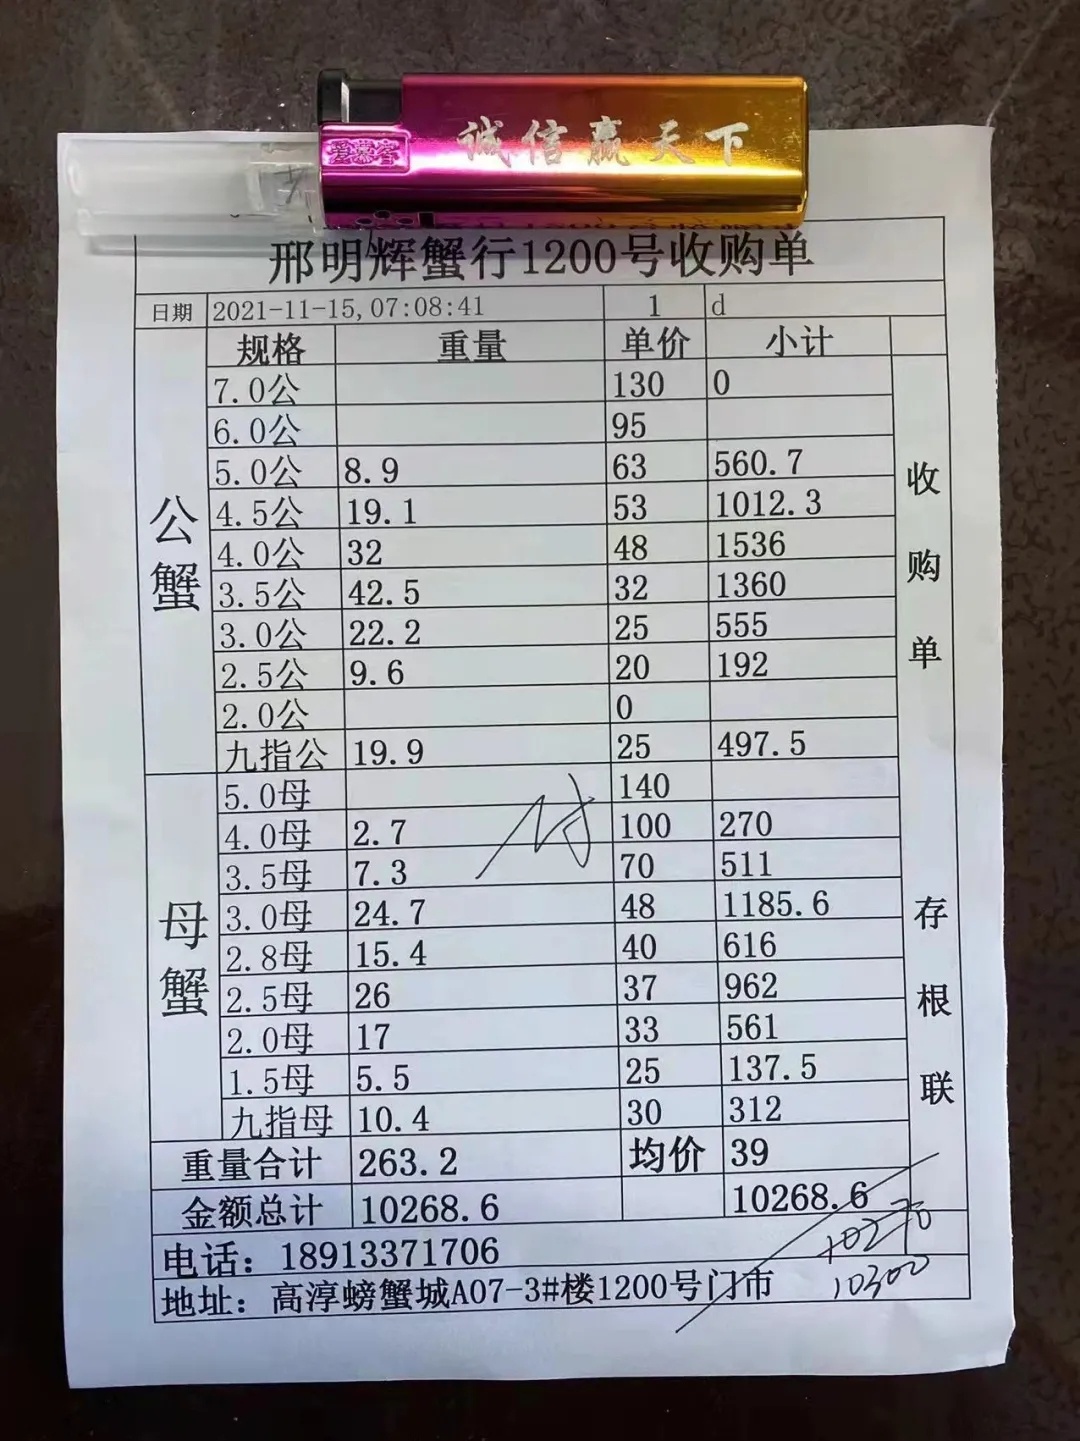 诚信赢天下
爱慕客
邢明辉蟹行1200号收购单
日期 2021-11-15,07:08:41 1 d
规格 重量 单价 小计
公蟹
7.0公 130 0
6.0公 95
5.0公 8.9 63 560.7
4.5公 19.1 53 1012.3
4.0公 32 48 1536
3.5公 42.5 32 1360
3.0公 22.2 25 555
2.5公 9.6 20 192
2.0公 0
九指公 19.9 25 497.5
母蟹
5.0母 140
4.0母 2.7 100 270
3.5母 7.3 70 511
3.0母 24.7 48 1185.6
2.8母 15.4 40 616
2.5母 26 37 962
2.0母 17 33 561
1.5母 5.5 25 137.5
九指母 10.4 30 312
收购单 存根联
重量合计 263.2 均价 39
金额总计 10268.6 10268.6
10270
电话：18913371706
10300
地址：高淳螃蟹城A07-3#楼1200号门市
付